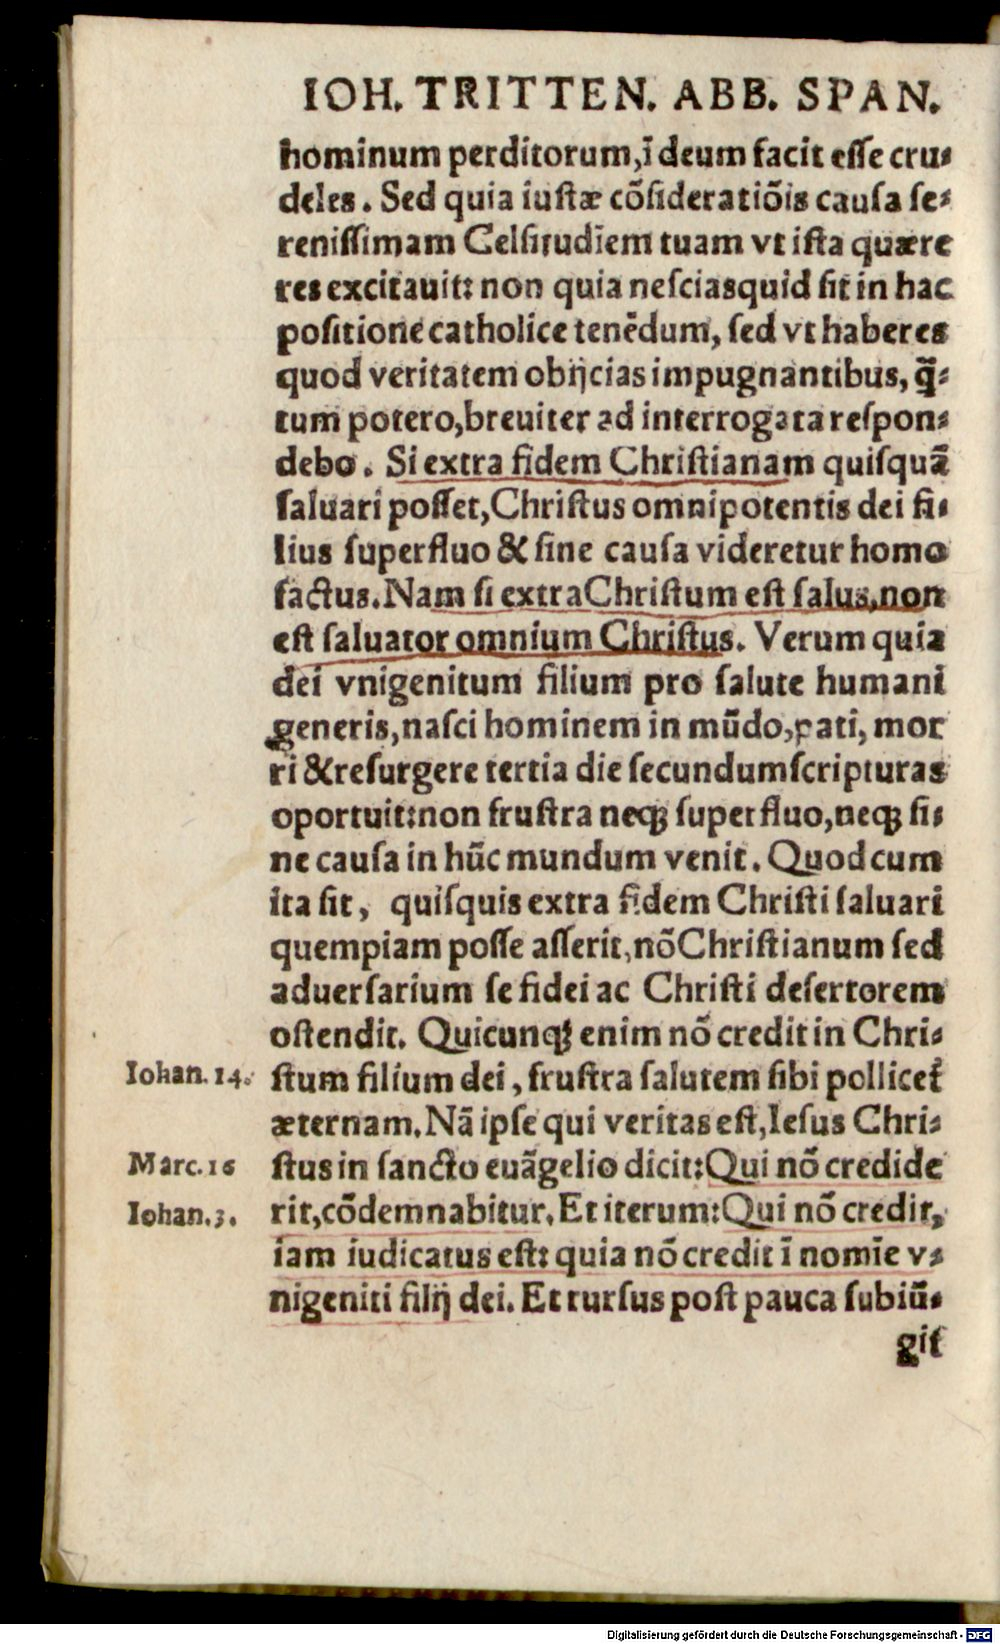 IOH. TRITTEN. ABB. SPAN.
hominum perditorum, ī deum facit eſſe cru⸗
deles. Sed quia iuſtæ cōſideratiōis cauſa ſe⸗
reniſſimam Celſitudīem tuam vt iſta quære
res excitauit: non quia neſcias quid ſit in hac
poſitione catholice tenēdum, ſed vt haberes
quod veritatem obijcias impugnantibus, q̃⸗
tum potero, breuiter ad interrogata reſpon⸗
debo. Si extra fidem Chriſtianam quiſquā
ſaluari poſſet, Chriſtus omnipotentis dei fi⸗
lius ſuperfluo & ſine cauſa videretur homo
factus. Nam ſi extra Chriſtum eſt ſalus, non
eſt ſaluator omnium Chriſtus. Verum quia
dei vnigenitum filium pro ſalute humani
generis, naſci hominem in mūdo, pati, mor
ri & reſurgere tertia die ſecundum ſcripturas
oportuit: non fruſtra neqꝫ ſuperfluo, neqꝫ ſi⸗
ne cauſa in hūc mundum venit. Quod cum
ita ſit, quiſquis extra fidem Chriſti ſaluari
quempiam poſſe aſſerit, nō Chriſtianum ſed
aduerſarium ſe fidei ac Chriſti deſertorem
oſtendit. Quicunqꝫ enim nō credit in Chri⸗
Iohan. 14. ſtum filium dei, fruſtra ſalutem ſibi pollicet᷑
æternam. Nā ipſe qui veritas eſt, Ieſus Chri⸗
Marc. 16 ſtus in ſancto euāgelio dicit: Qui nō credide
Iohan. 3. rit, cōdemnabitur. Et iterum: Qui nō credit,
iam iudicatus eſt: quia nō credit ī nomīe v⸗
nigeniti filij dei. Et rurſus poſt pauca ſubiū⸗
git
Digitalisierung gefördert durch die Deutsche Forschungsgemeinschaft - DFG